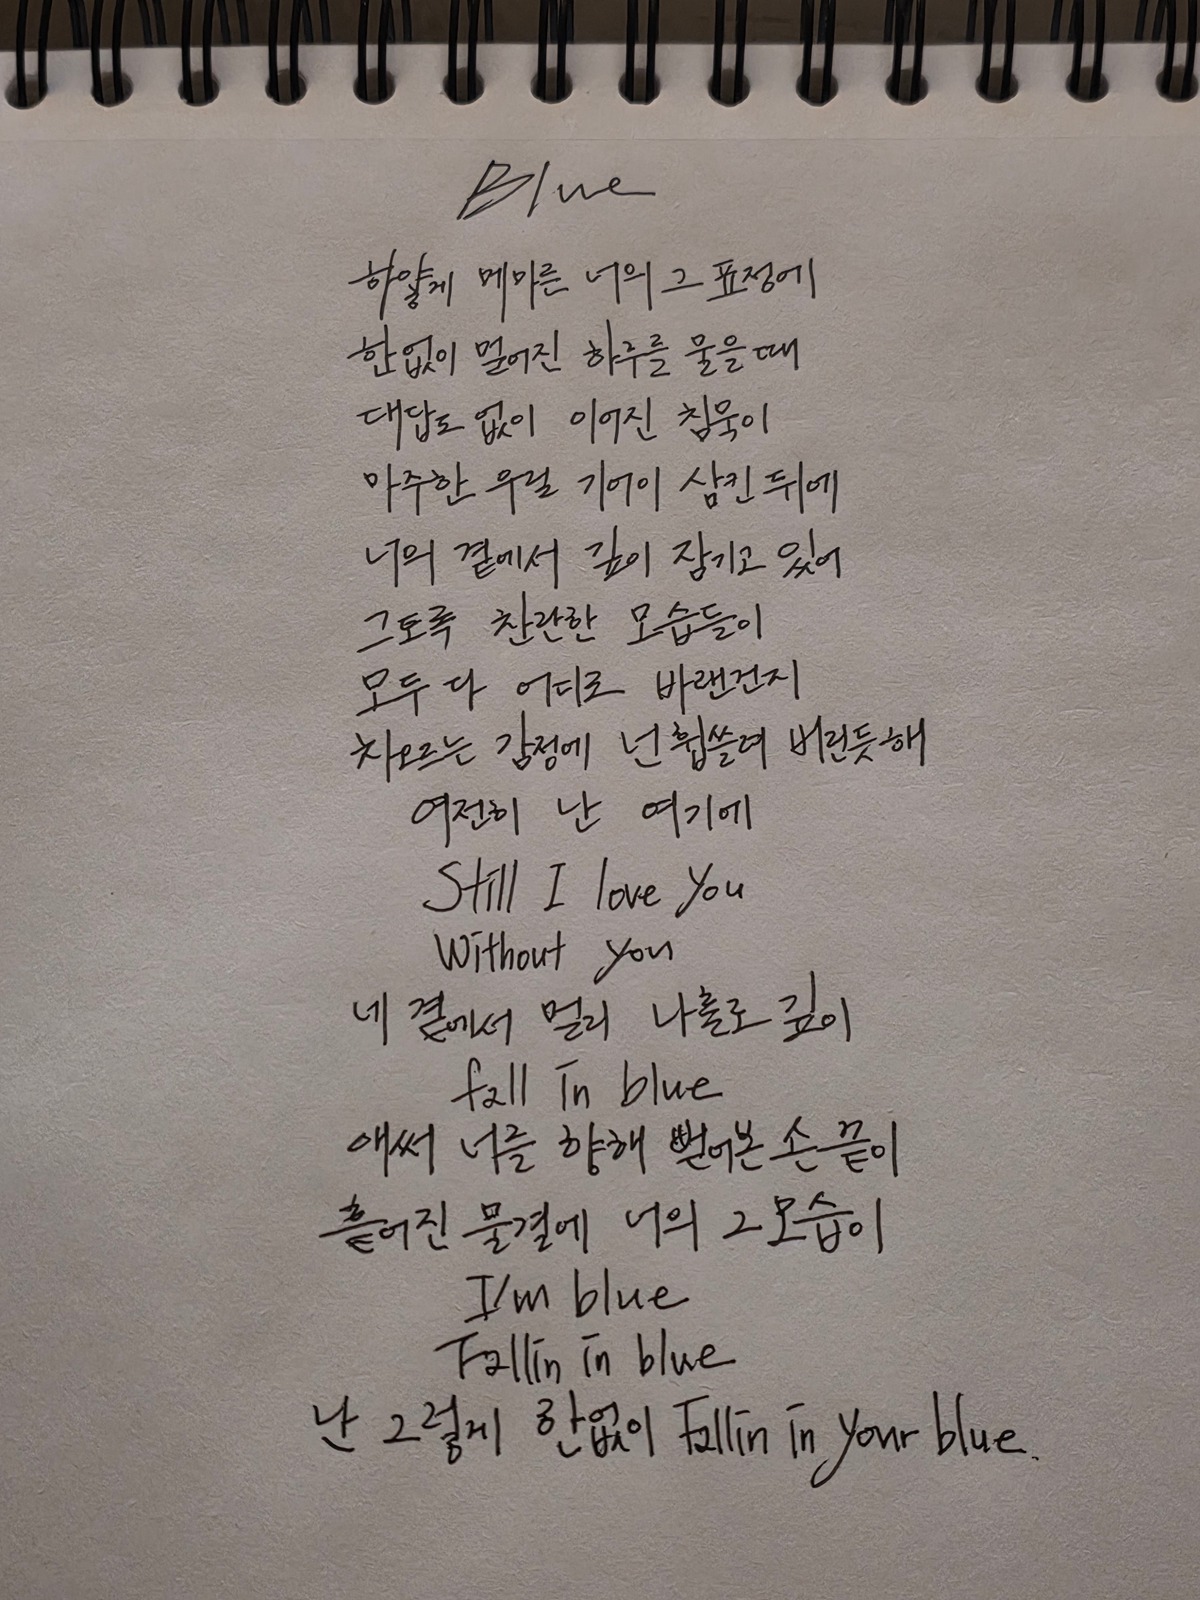 Blue
하얗게 메마른 너의 그 표정에
한없이 멀어진 하루를 물을 때
대답도 없이 이어진 침묵이
마주한 우릴 기어이 삼킨 뒤에
너의 곁에서 깊이 잠기고 있어
그토록 찬란한 모습들이
모두 다 어디로 바랜건지
차오르는 감정에 넌 휩쓸려 버린듯해
여전히 난 여기에
Still I love you
Without you
네 곁에서 멀리 나홀로 깊이
fall in blue
애써 너를 향해 뻗어본 손 끝이
흩어진 물결에 너의 그 모습이
I'm blue
Fallin in blue
난 그렇게 한없이 Fallin in your blue.